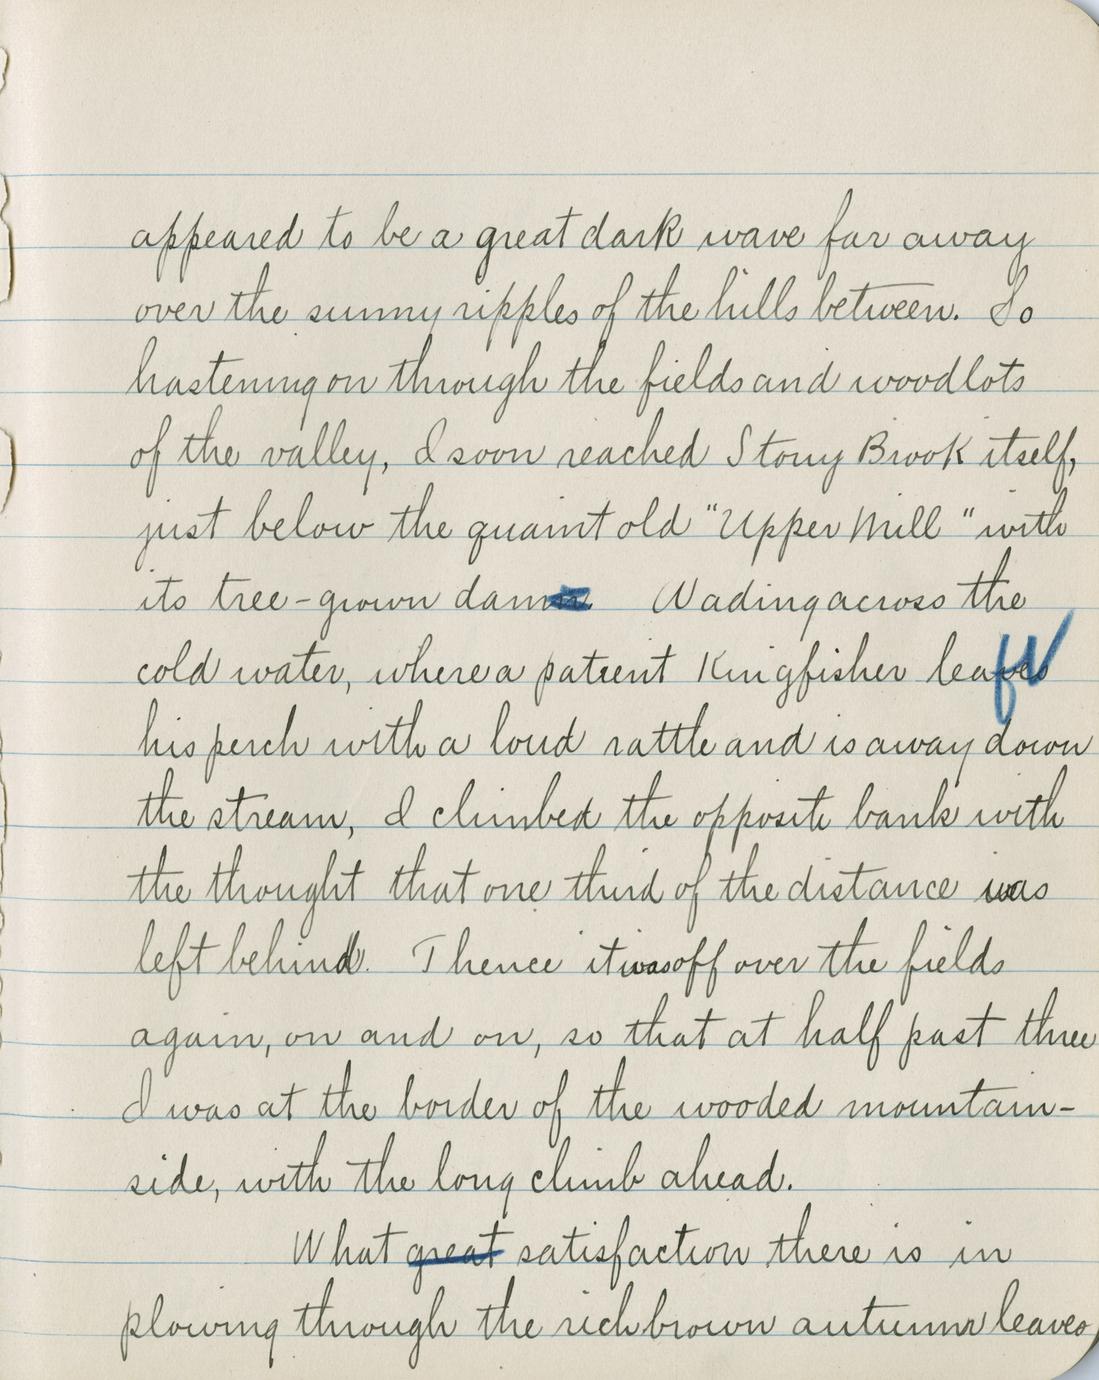 appeared to be a great dark wave far away
over the sunny ripples of the hills between. So
hastening on through the fields and woodlots
of the valley, I soon reached Stony Brook itself,
just below the quaint old "Upper Mill" with
its tree-grown dam
Wading across the
cold water, where a patient Kingfisher leaves
his perch with a loud rattle and is away down
the stream, I climbed the opposite bank with
the thought that one third of the distance was
left behind. Thence it was off over the fields
again, on and on, so that at half past three
I was at the border of the wooded mountain-
side, with the long climb ahead.
What great satisfaction there is in
plowing through the rich brown autumn leaves,